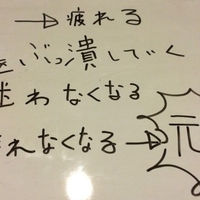 →疲れる
ぶっ潰していく
迷わなくなる
れなくなる→元